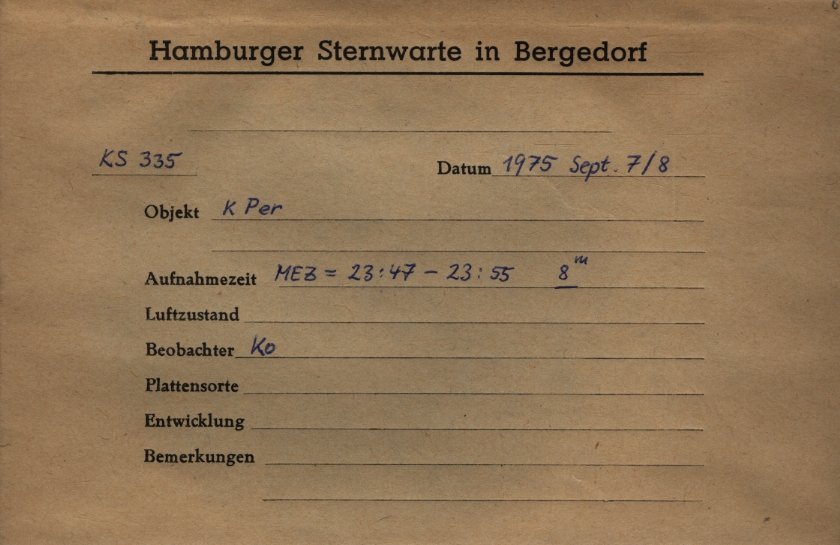 Hamburger Sternwarte in Bergedorf
KS 335 Datum 1975 Sept. 7/8
Objekt K Per
Aufnahmezeit MEZ = 23:47 - 23:55 8ᵐ
Luftzustand
Beobachter Ko
Plattensorte
Entwicklung
Bemerkungen